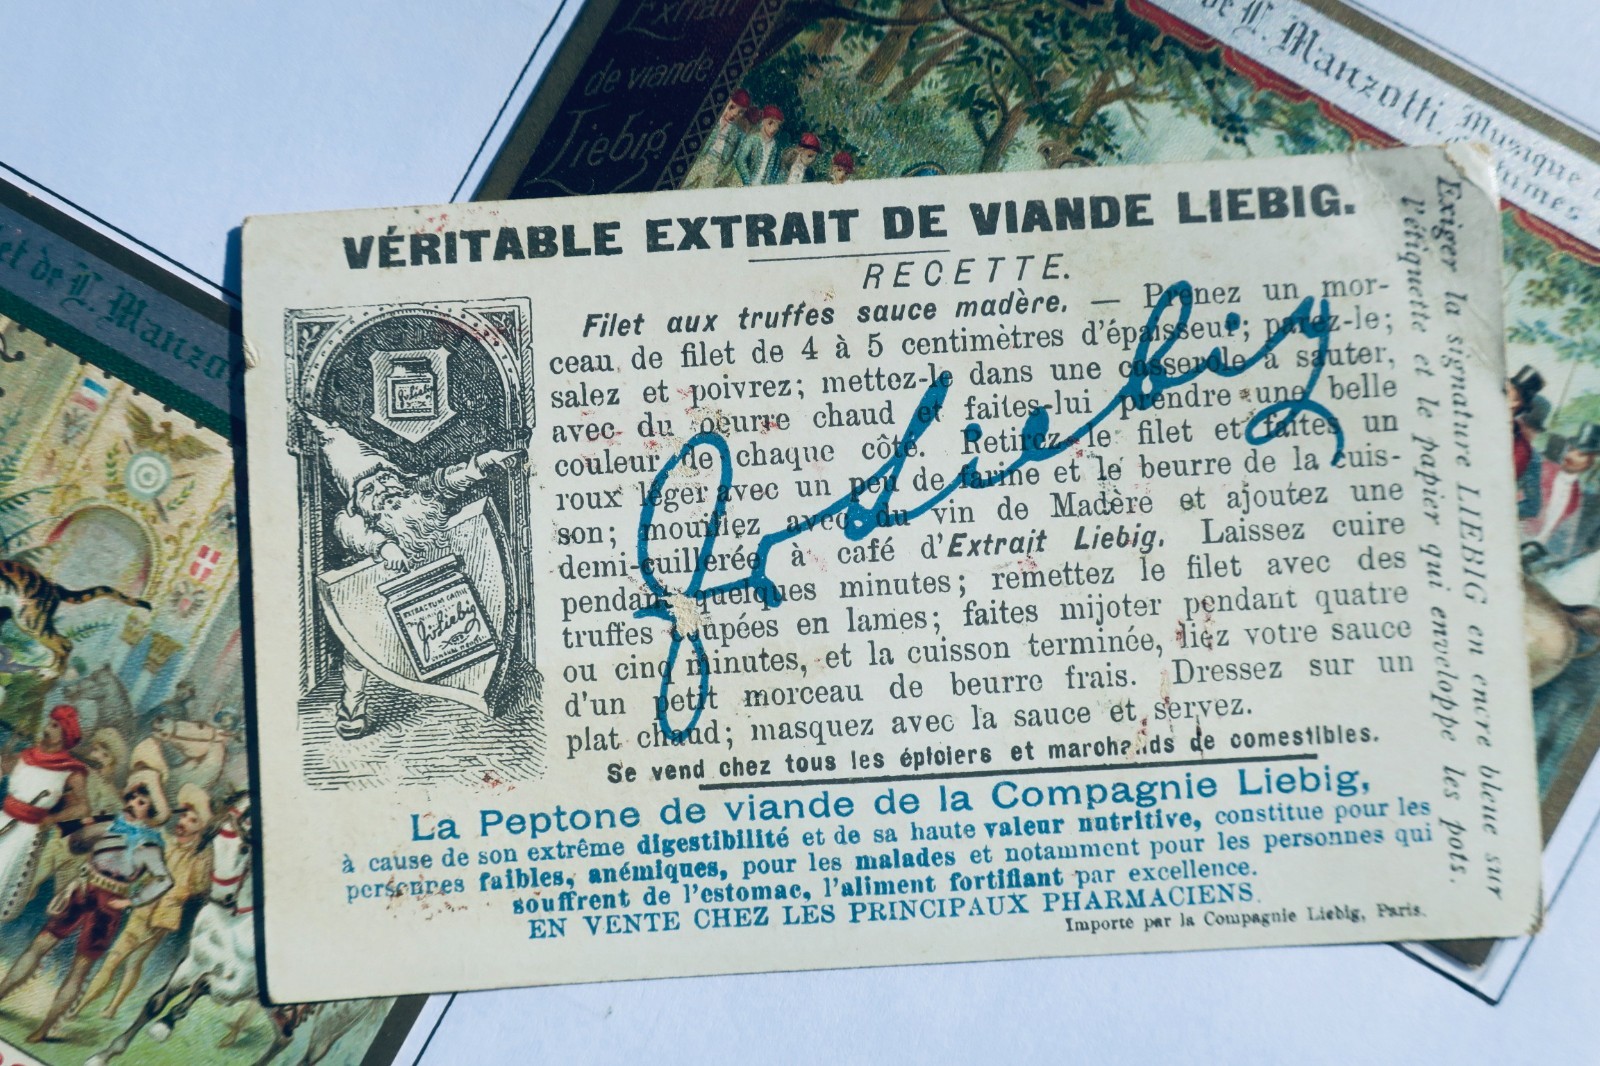 Extrait
de viande
Liebig
de L. Manzotti. Musique
et de L. Manzo
VÉRITABLE EXTRAIT DE VIANDE LIEBIG.
RECETTE.
Filet aux truffes sauce madère. — Prenez un mor-
ceau de filet de 4 à 5 centimètres d'épaisseur; parez-le;
salez et poivrez; mettez-le dans une casserole à sauter,
avec du beurre chaud et faites-lui prendre une belle
couleur de chaque côté. Retirez le filet et faites un
roux léger avec un peu de farine et le beurre de la cuis-
son; mouillez avec du vin de Madère et ajoutez une
demi-cuillerée à café d'Extrait Liebig. Laissez cuire
pendant quelques minutes; remettez le filet avec des
truffes coupées en lames; faites mijoter pendant quatre
ou cinq minutes, et la cuisson terminée, liez votre sauce
d'un petit morceau de beurre frais. Dressez sur un
plat chaud; masquez avec la sauce et servez.
Se vend chez tous les épiciers et marchands de comestibles.
La Peptone de viande de la Compagnie Liebig,
à cause de son extrême digestibilité et de sa haute valeur nutritive, constitue pour les
personnes faibles, anémiques, pour les malades et notamment pour les personnes qui
souffrent de l'estomac, l'aliment fortifiant par excellence.
EN VENTE CHEZ LES PRINCIPAUX PHARMACIENS.
Importé par la Compagnie Liebig, Paris.
Exiger la signature LIEBIG en encre bleue sur
l'étiquette et le papier qui enveloppe les pots.
JvLiebig
JvLiebig
EXTRACTUM CARNIS
JvLiebig